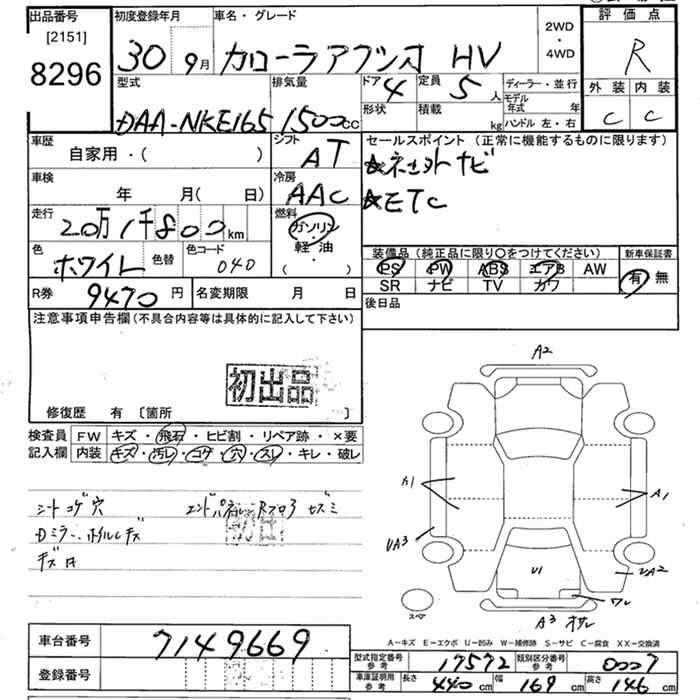 出品番号
[2151]
8296
初度登録年月
30 9月
車名・グレード
カローラアクシオ HV
2WD
・
4WD
評価点
R
外装 内装
C C
型式
DAA-NKE165
排気量
1500cc
ドア 4
定員 5人
形状
積載 kg
ディーラー・並行
モデル年式 年
ハンドル 左・右
車歴
自家用・( )
シフト
AT
車検
年 月( 日)
冷房
AAC
走行
20万1千800km
燃料
ガソリン
軽・油
色
ホワイト
色替
色コード
040
R券 9470円
名変期限 月 日
セールスポイント (正常に機能するものに限ります)
★ナビ
★ETC
装備品(純正品に限り○をつけてください)
PS PW ABS エアB AW
SR ナビ TV カワ
新車保証書
有 無
後日品
注意事項申告欄(不具合内容等は具体的に記入して下さい)
初出品
修復歴 有 [箇所 ]
検査員 FW キズ・飛石・ヒビ割・リペア跡・×要
記入欄 内装 キズ・汚レ・コゲ・穴・スレ・キレ・破レ
シートコゲ穴 エンドパネル、Rフロア
Dミラー、ホイルキズ
初出
A2
A1
A1
UA3
UA2
U1
ワレ
A3
スペア
A-キズ E-エクボ U-凹み W-補修跡 S-サビ C-腐食 XX-交換済
車台番号 7149669
登録番号
型式指定番号 参考 17572
類別区分番号 参考 0007
車庫証明用 参考 長さ 440cm 幅 169cm 高さ 146cm